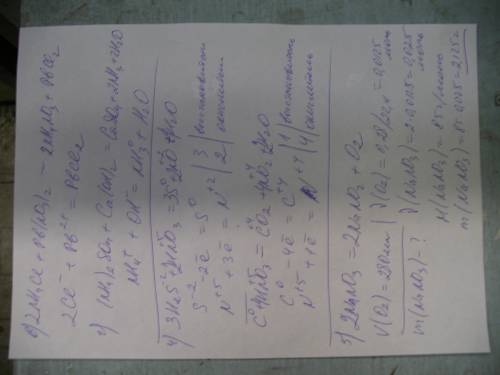 в) 2NH₄Cl + Pb(NO₃)₂ = 2NH₄NO₃ + PbCl₂
2Cl⁻ + Pb²⁺ = PbCl₂
г) (NH₄)₂SO₄ + Ca(OH)₂ = CaSO₄ + 2NH₃ + 2H₂O
NH₄⁺ + OH⁻ = NH₃⁰ + H₂O
4) 3H₂S⁻² + 2HN⁺⁵O₃ = 3S⁰ + 2N⁺²O + 4H₂O
S⁻² - 2ē = S⁰ | 3 | восстановитель
N⁺⁵ + 3ē = N⁺² | 2 | окислитель
C⁰ + 4HN⁺⁵O₃ = C⁺⁴O₂ + 4N⁺⁴O₂ + 2H₂O
C⁰ - 4ē = C⁺⁴ | 1 | восстановитель
N⁺⁵ + 1ē = N⁺⁴ | 4 | окислитель
5) 2NaNO₃ = 2NaNO₂ + O₂
V(O₂) = 280 мл | ν(O₂) = 0,28/22,4 = 0,0125 моль
m(NaNO₃) - ? | ν(NaNO₃) = 2·0,0125 = 0,025 моль
M(NaNO₃) = 85 г/моль
m(NaNO₃) = 85·0,025 = 2,125 г